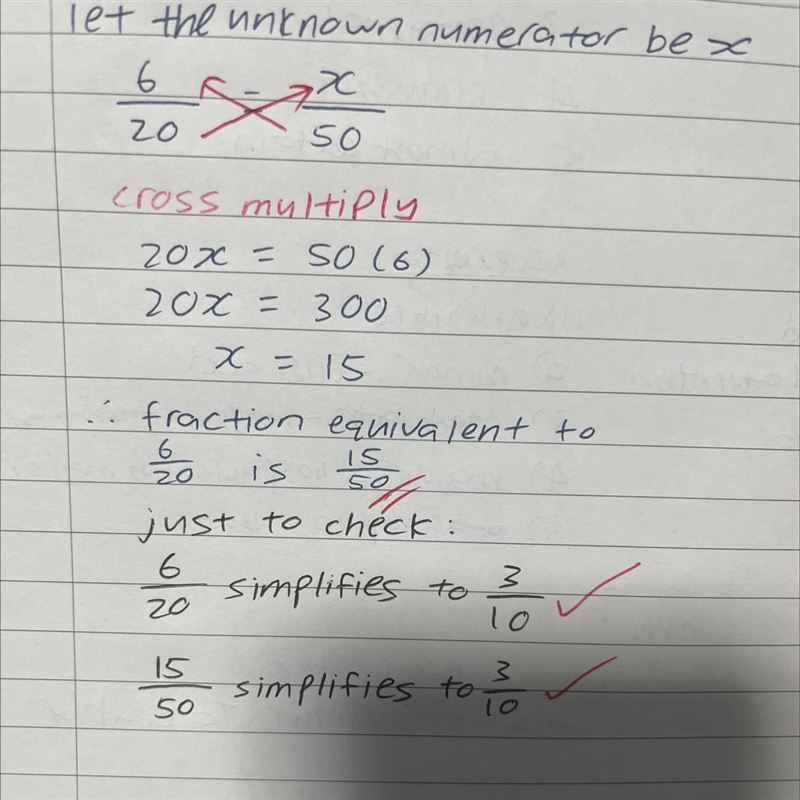 let the unknown numerator be x
6/20 = x/50
cross multiply
20x = 50(6)
20x = 300
x = 15
∴ fraction equivalent to
6/20 is 15/50
just to check:
6/20 simplifies to 3/10 ✓
15/50 simplifies to 3/10 ✓